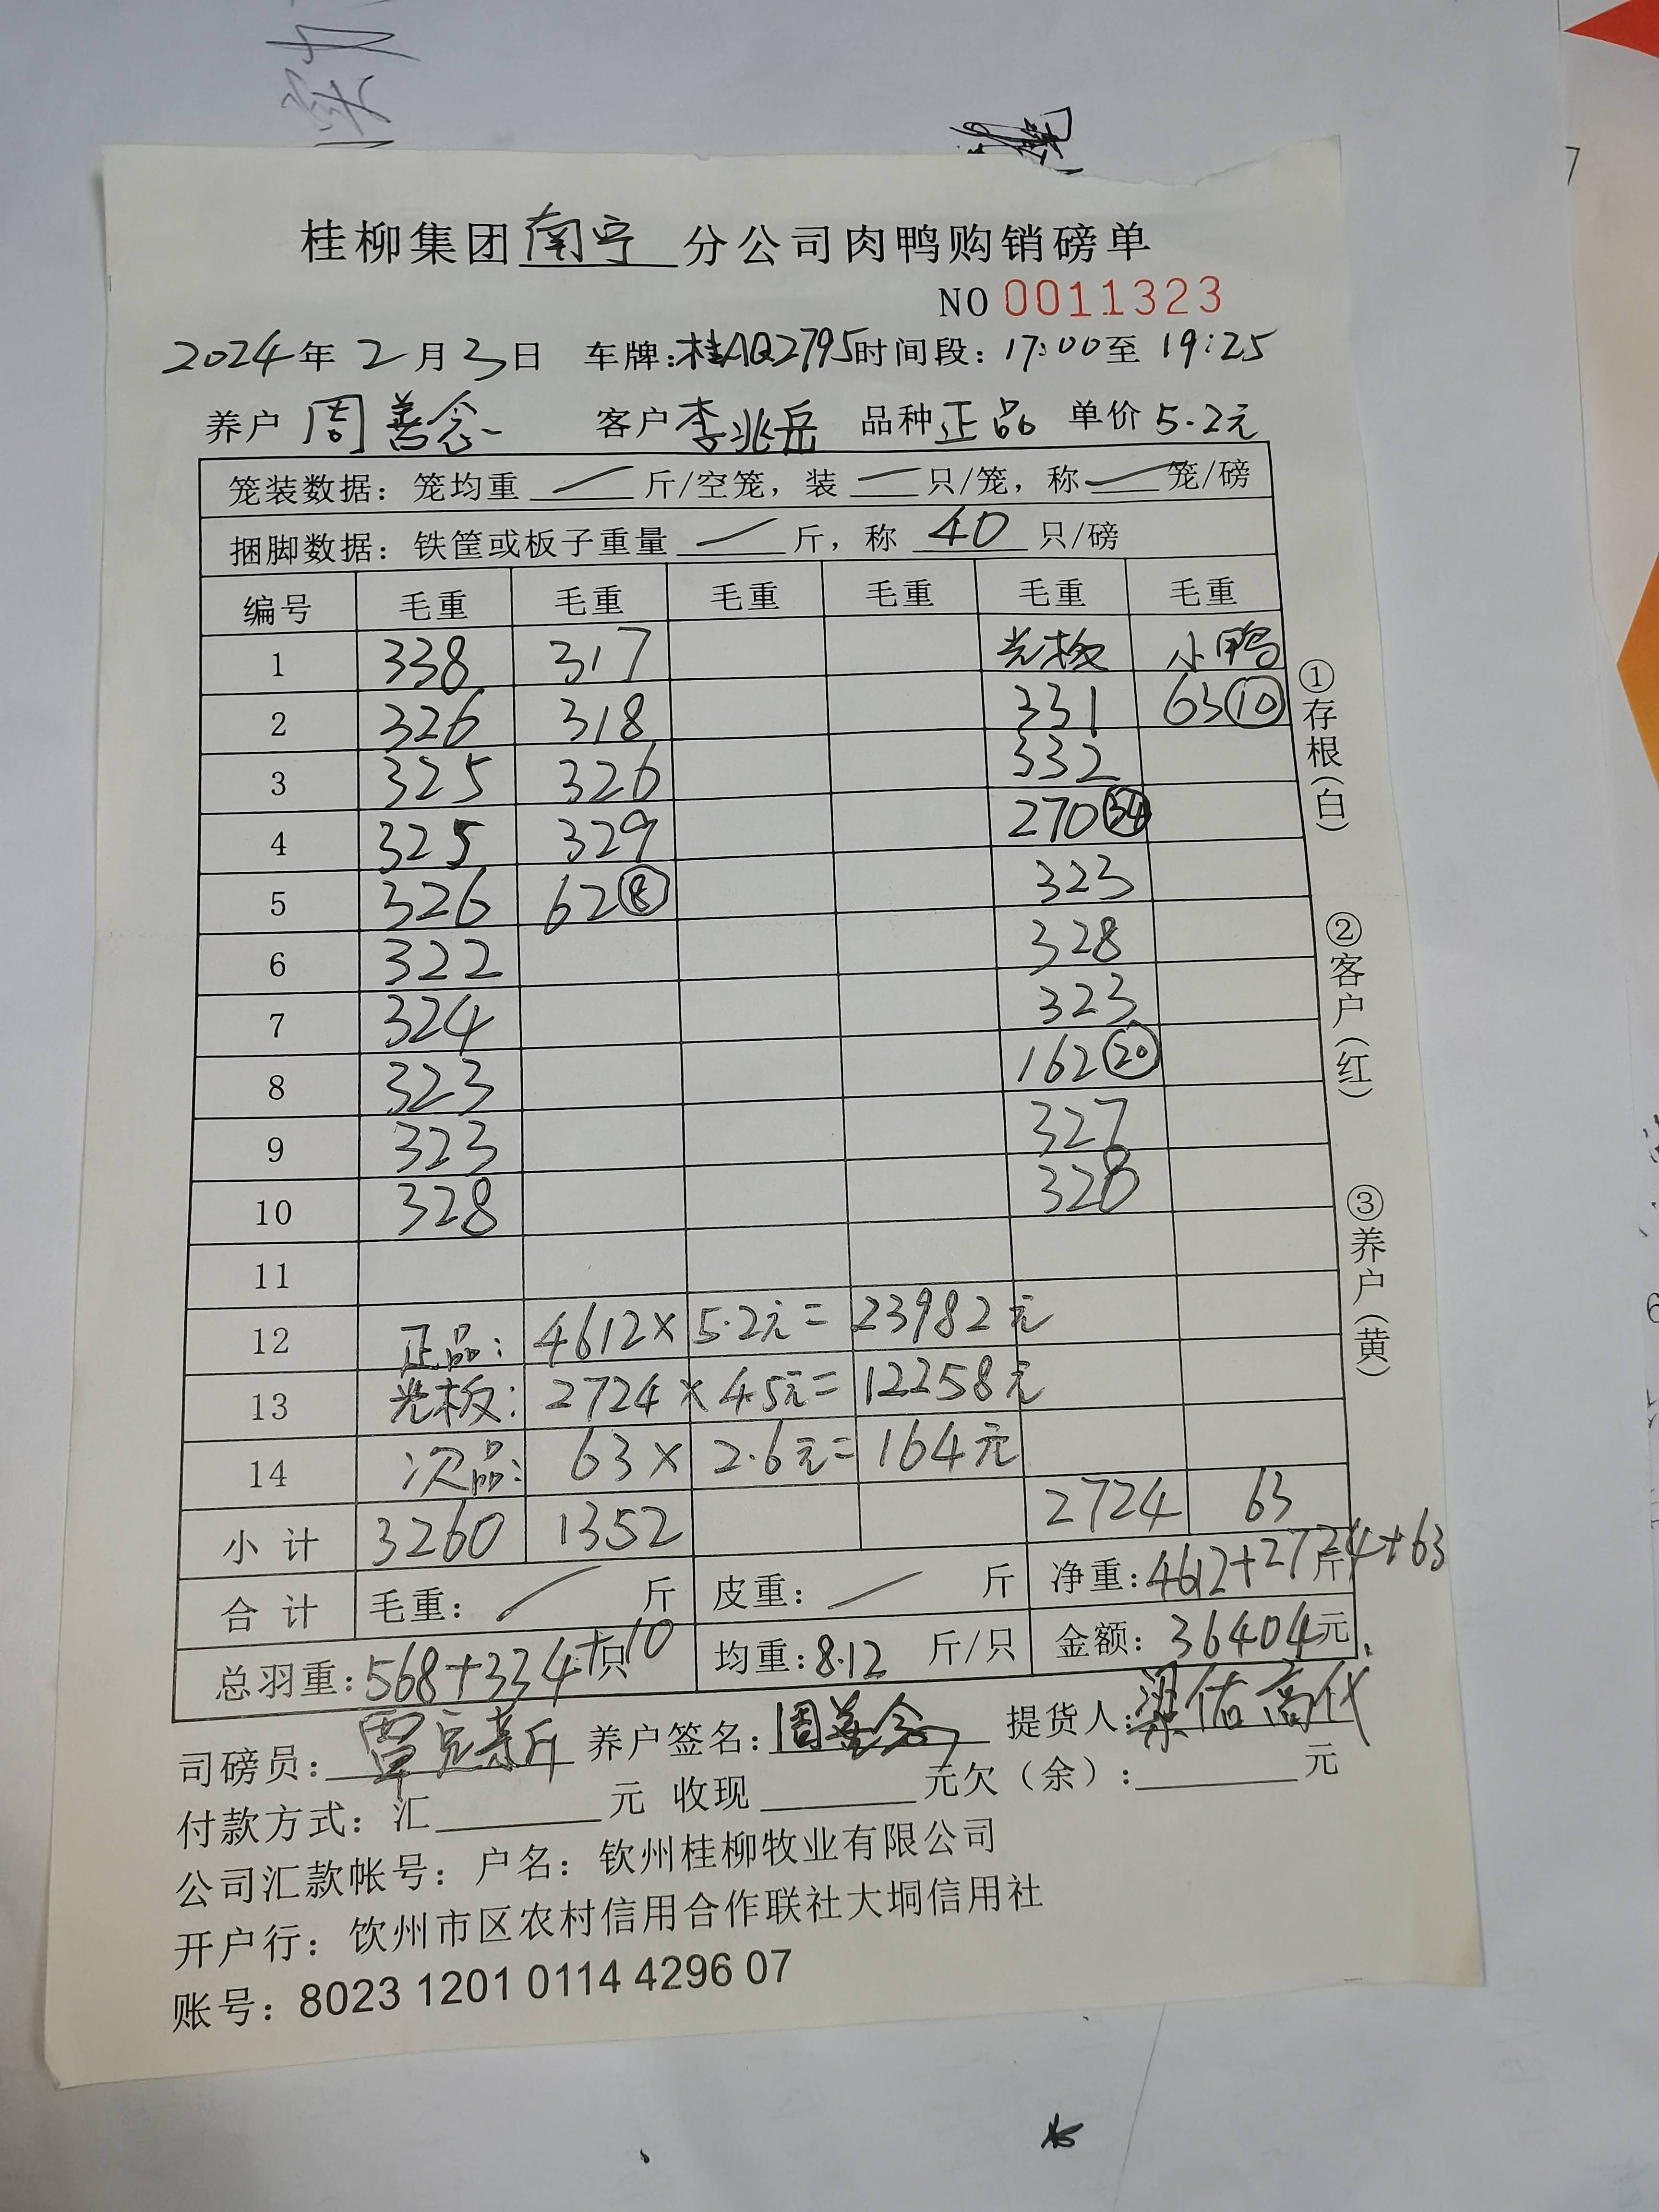 桂柳集团南宁分公司肉鸭购销磅单
NO 0011323
2024年2月3日 车牌:桂AQ2795 时间段:17:00至19:25
养户 周善念 客户 李兆岳 品种 正品 单价 5.2元
笼装数据:笼均重 — 斤/空笼,装 — 只/笼,称 — 笼/磅
捆脚数据:铁筐或板子重量 — 斤,称 40 只/磅
编号 毛重 毛重 毛重 毛重 毛重 毛重
1 338 317 光板 小鸭
2 326 318 331 63⑩
3 325 326 332
4 325 329 270㉞
5 326 62⑧ 323
6 322 328
7 324 323
8 323 162⑳
9 323 327
10 328 328
11
12 正品: 4612× 5.2元= 23982元
13 光板: 2724× 4.5元= 12258元
14 次品: 63× 2.6元= 164元
小计 3260 1352 2724 63
合计 毛重: — 斤 皮重: — 斤 净重:4612+2724+63斤
总羽重:568+334+10只 均重:8.12 斤/只 金额:36404元
司磅员: 养户签名:周善念 提货人:梁佑高代
付款方式:汇 元 收现 元欠(余): 元
公司汇款帐号:户名:钦州桂柳牧业有限公司
开户行:钦州市区农村信用合作联社大垌信用社
账号:8023 1201 0114 4296 07
①存根(白)
②客户(红)
③养户(黄)